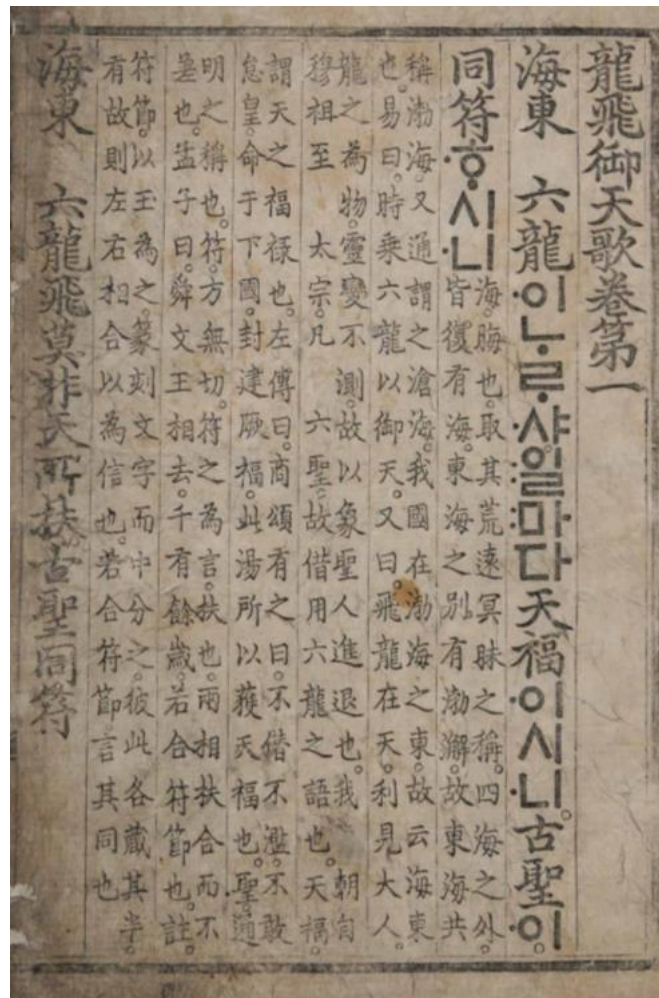 龍飛御天歌卷第一
海東 六龍·이ᄂᆞᄅᆞ·샤:일:마다天福·이시·니。古聖·이。
同符·ᄒᆞ시·니
海。晦也。取其荒遠冥昧之稱。四海之外。
皆復有海。東海之別有渤澥。故東海共
稱渤海。又通謂之滄海。我國在渤海之東。故云海東
也。易曰。時乘六龍以御天。又曰。飛龍在天。利見大人。
龍之為物。靈變不測。故以象聖人進退也。我 朝自
穆祖至 太宗。凡 六聖。故借用六龍之語也。天福。
謂天之福祿也。左傳曰。商頌有之曰。不僭不濫。不敢
怠皇。命于下國。封建厥福。此湯所以獲天福也。聖。通
明之稱也。符。方無切。符之為言。扶也。兩相扶合而不
差也。孟子曰。舜文王相去。千有餘歲。若合符節也。註。
符節。以玉為之。篆刻文字而中分之。彼此各藏其半。
有故則左右相合以為信也。若合符節言其同也
海東 六龍飛莫非天所扶古聖同符